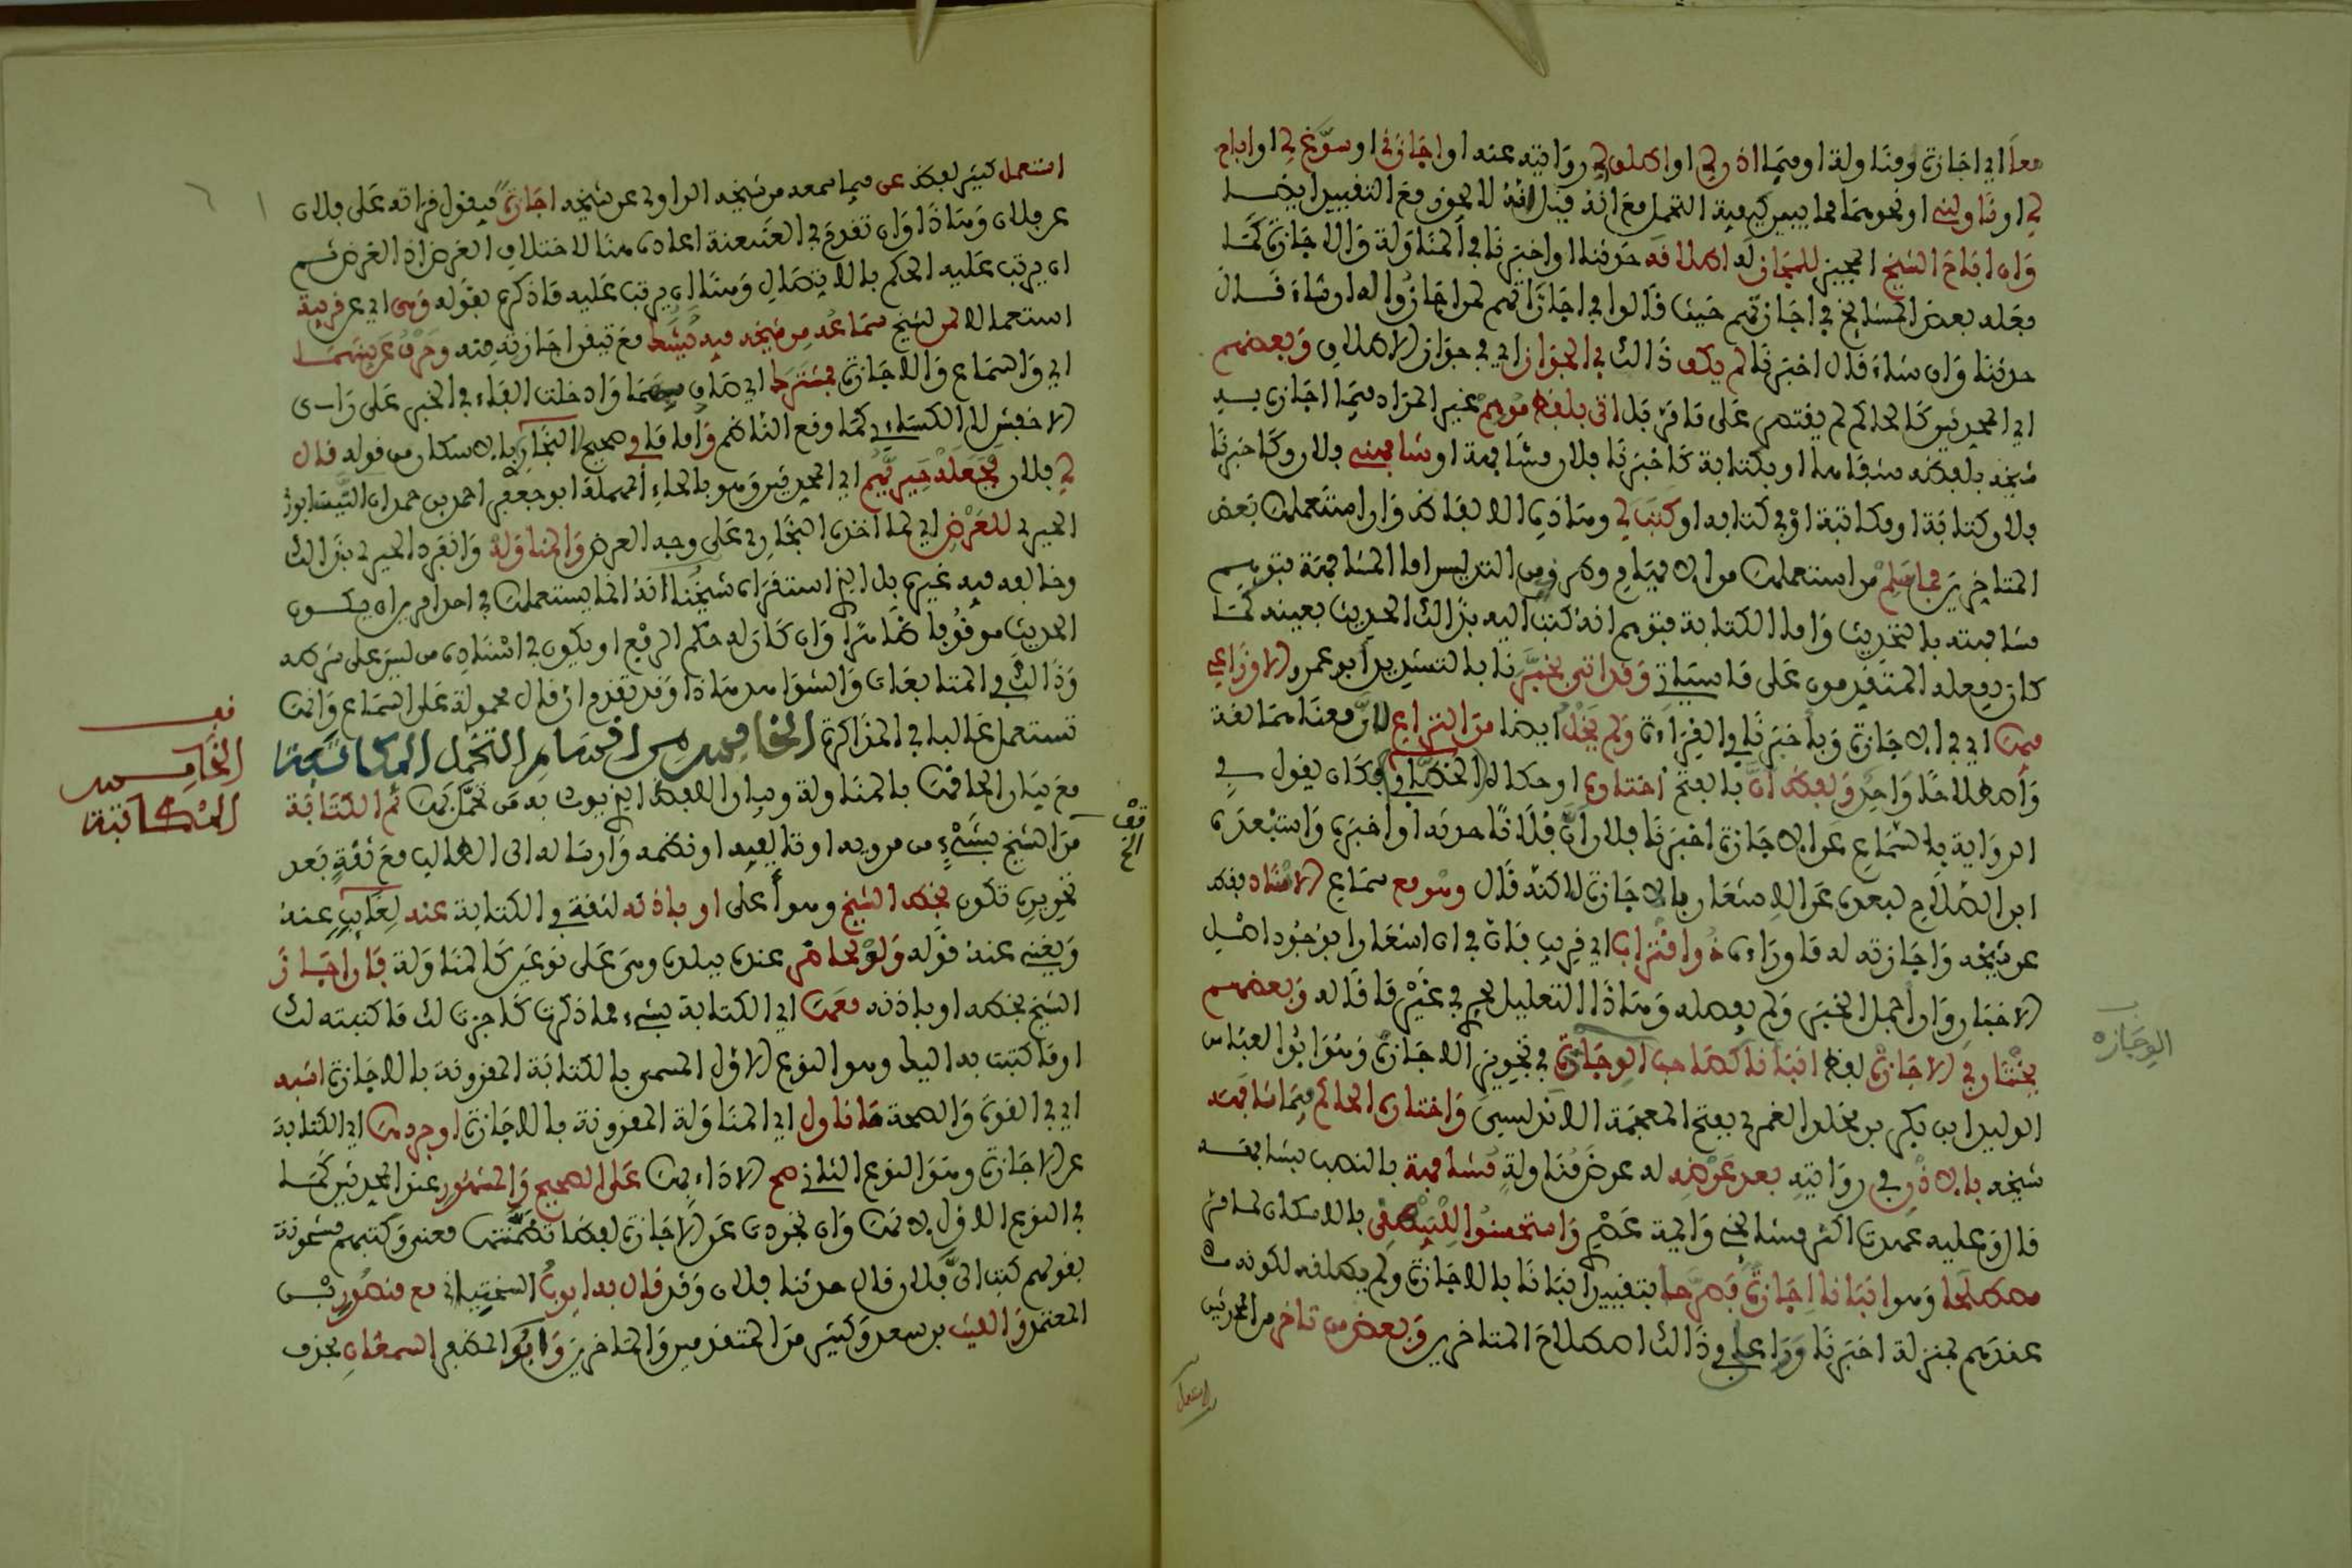 معا اي اجازة ومناولة او فيما اذن لي او اطلق لي روايته عنه او اجازني او سوغ لي او اباح
لي او ناولني او نحوهما مما يبين كيفية التحمل مع انه قيل انه لا يجوز مع التقييد ايضا
وان اباح الشيخ المجيز للمجاز له اطلاقه حدثنا او اخبرنا في المناولة والاجازة كما
فعله بعض المشايخ في اجازتهم حيث قالوا في اجازاتهم لمن اجازوا له ان شاء قال
حدثنا وان شاء قال اخبرنا لم يكف ذالك في الجواز اي في جواز الاطلاق وبعضهم
اي المحدثين كالحاكم لم يقتصر على ما مر بل اتى بلفظ موهم غير المراد فيما اجازه به
شيخه بلفظه شفاها او بكتابة كاخبرنا فلان مشافهة او شافهني فلان وكاخبرنا
فلان كتابة او مكاتبة او في كتابه او كتب لي وهاذه الالفاظ وان استعملت بعض
المتاخرين فما سلم من استعملت من الايهام وطرف من التدليس اما المشافهة فتوهم
مشافهته بالتحديث واما الكتابة فتوهم انه كتب اليه بذالك الحديث بعينه كما
كان يفعله المتقدمون على ما سياتي وقد اتى بخبرنا بالتشديد ابو عمرو الاوزاعي
فيها اي في الاجازة وباخبرنا في القراءة ولم يخل ايضا من النزاع لان معناهما لغة
واصطلاحا واحد ولفظ ان بالفتح اختاره او حكاه الخطابي فكان يقول في
الرواية بالسماع عن الاجازة اخبرنا فلان ان فلانا حدثه او اخبره واستبعده
ابن الصلاح لبعده عن الاشعار بالاجازة لاكنه قال وهو مع سماع الاسناد فقط
من شيخه واجازته له ما وراءه ذو اقتراب اي قريب فان في ان اشعارا بوجود اصل
الاخبار وان اجمل المخبر ولم يفصله وهاذا التعليل يجري في غير ما قاله وبعضهم
يختار في الاجازة لفظ انبانا كصاحب الوجازة في تجويز الاجازة وهو ابو العباس
الوليد ابن بكر بن مخلد الغمري بفتح المعجمة الاندلسي واختاره الحاكم فيما شافهه
شيخه بالاذن في روايته بعد عرضه له عرض مناولة مشافهة بالنصب بشافهه
قال وعليه عهدت اكثر مشايخي وائمة عصري واستحسنوا للبيهقي بالاسكان لما مر
مصطلحا وهو انبانا اجازة فصرحا بتقييد انبانا بالاجازة ولم يطلقه لكونه
عندهم بمنزلة اخبرنا وراعى في ذالك اصطلاح المتاخرين وبعض من تاخر من المحدثين
استعمل
الوجازه
استعمل كثير لفظ عن فيما سمعه من شيخه الراوي عن شيخه اجازة فيقول قرات على فلان
عن فلان وهاذا وان تقدم في العنعنة اعاده هنا لاختلاف الغرض اذ الغرض ثم
ان يرتب عليه الحكم بالاتصال وهنا ان يرتب عليه ما ذكره بقوله وهي اي عن قريبة
استعمالا لمن لشيخ سماعه من شيخه فيه يشك مع تيقن اجازته منه وحرف عن بينهما
اي والسماع والاجازة فمشترك اي صادق بهما وادخلت الفاء في الخبر على راى
الاخفش لا الكسائي كما وقع للناظم واما ما في صحيح البخاري باسكان من قوله قال
لي فلان فجعله حيريهم اي المحدثين وهو بالحاء المهملة ابو جعفر احمد بن حمدان النيسابوري
الحيري للعرض اي لما اخذه البخاري على وجه العرض والمناولة وانفرد الحيري بذالك
وخالفه فيه غيره بل الذي استقراه شيخنا انه انما يستعملت في احد امرين ان يكون
الحديث موقوفا ظاهرا وان كان له حكم الرفع او يكون في اسناده من ليس على شرطه
وذالك في المتابعات والشواهد هاذا وقد تقدم ان قال محمولة على السماع وانها
تستعمل غالبا في المذاكرة الخامس من اقسام التحمل المكاتبة
مع بيان الحاقها بالمناولة وبيان اللفظ الذي يودي به من تحملت ثم الكتابة
من الشيخ بشيء من مرويه او تاليفه او نظمه وارساله الى الطالب مع ثقة بعد
تحريره تكون بخط الشيخ وهو اعلى او باذنه لثقة في الكتابة عنه لغائب عنه
ويغني عنه قوله ولو لحاضر عنده ببلده وهي على نوعين كالمناولة فان اجاز
الشيخ بخطه او باذنه معها اي الكتابة بشيء مما ذكرت كاجزت لك ما كتبته لك
او ما كتبت به اليك وهو النوع الاول المسمى بالكتابة المقرونة بالاجازة اشبه
اي في القوة والصحة ما ناول اي المناولة المقرونة بالاجازة او جردها اي الكتابة
عن الاجازة وهو النوع الثاني صح الاداء بها على الصحيح والمشهور عند المحدثين كما
في النوع الاول لانها وان تجردت عن الاجازة لفظا تضمنتها معنى وكتبهم مشحونة
بقولهم كتب الي فلان قال حدثنا فلان وقد قال به ايوب السختياني مع منصور بن
المعتمر والليث بن سعد وكثير من المتقدمين والمتاخرين وابو المظفر السمعاني بحذف
قف
الخامس
المكاتبة
قف
الخ